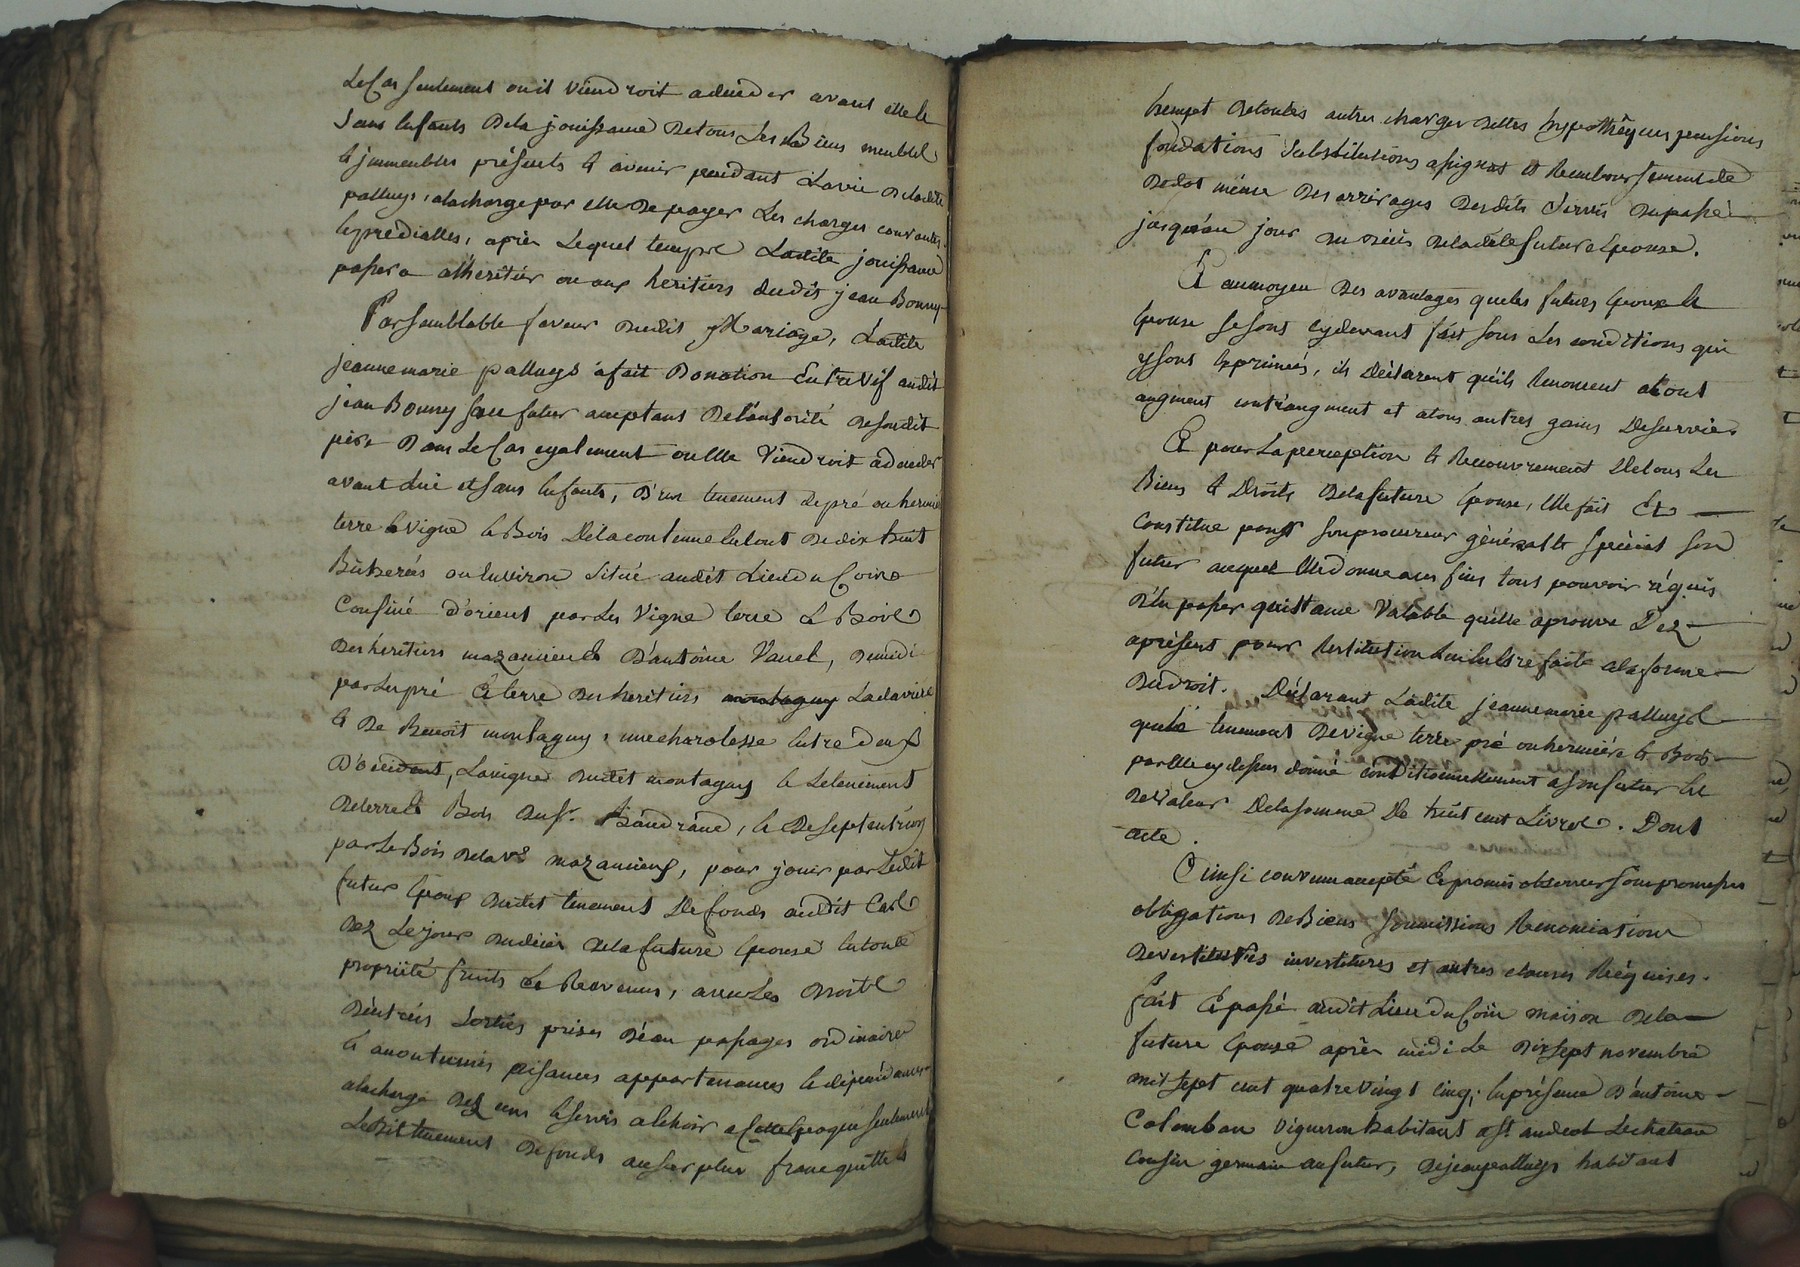 le Cas seulement ou il viendroit a deceder avant elle &
sans Enfants De la jouissance De tous Les Biens meubles
& jmmeubles présents & avenir pendant La vie De ladite
palluys, a la charge par elle De payer Les charges courantes
& predialles, après Lequel tempse Ladite jouissance
passera a l'heritier ou aux heritiers dudit jean Bonny
Par semblable faveur Dudit Mariage, Ladite
jeanne marie palluys a fait Donation Entre Vif audit
jean Bonny son futur acceptant De l'autorité De son dit
père Dans Le Cas egalement ou Elle Viendroit a deceder
avant Lui et sans Enfants, D'un tenement de pré ou hermie
terre & vigne & Bois De la contenue En tout De dix huit
Bicherées ou Environ Situé audit Lieu du Coin
Confiné D'orient par Les Vigne terre & Bois
Des héritiers mazancieux D'antoine Vanel, De midi
par Le pré & terre Des heritiers Ladaviere
& De Benoit montagny, une charolesse Entre deux
D'occident, La vigne Dudit montagny & Le tenement
De terre & Bois Du Sr. Baudrand, & De septentrion
par Le Bois De la Ve mazancieux, pour jouir par Ledit
futur Epoux Dudit tenement De fonds audit Cas
Dez Le jour Du décès De la future Epouse En toute
propriété fruits & Revenus, avec Les Droits
D'entrées Sorties prises D'eau passages ordinaires
& accoutumés aisances appartenances & dépendances
a la charge Des cens & servis a Echoir a Cette Epoque seulement
Le Dit tenement De fonds au surplus franc quitte &
Exempt De toutes autres charges Dettes hypothèques pensions
fondations Substitutions assignat & Remboursement de
De dot même Des arrérages Desdits Servis Du passé
jusqu'au jour du décès De ladite future Epouse.
Et au moyen Des avantages que les futurs Epoux &
Epouse se sont cy devant fait sous Les conditions qui
y sont Exprimées, ils Déclarent qu'ils Renoncent a tout
augment contraugment et a tous autres gains De survie.
Et pour La perception & Recouvrement De tous Les
Biens & Droits De la future Epouse, Elle fait Et
Constitue pour son procureur général & spécial son
futur auquel Elle donne aux fins tous pouvoir réquis
D'en passer quittance Valable qu'elle aprouve Dez
a présent pour Restitution En Etre faite a la forme
Du Droit. Déclarant Ladite jeanne marie palluys
que Le tenement De vigne terre pré ou hermiére & Bois
par Elle cy dessus donné conditionnellement a son futur Est
De Valeur De la somme De huit cent Livres. Dont
acte.
Ainsi convenu accepté & promis observer sous promesses
obligations De Biens soumissions Renonciations
Devestitures investitures et autres clauses Réquises.
Fait & passé audit Lieu du Coin maison De la
future Epouse après midi Le Dix sept novembre
mil sept cent quatre vingt cinq; En présence D'antoine
Colomban vigneron habitant a St andeol Le chateau
cousin germain au futur, De jean palluys habitant